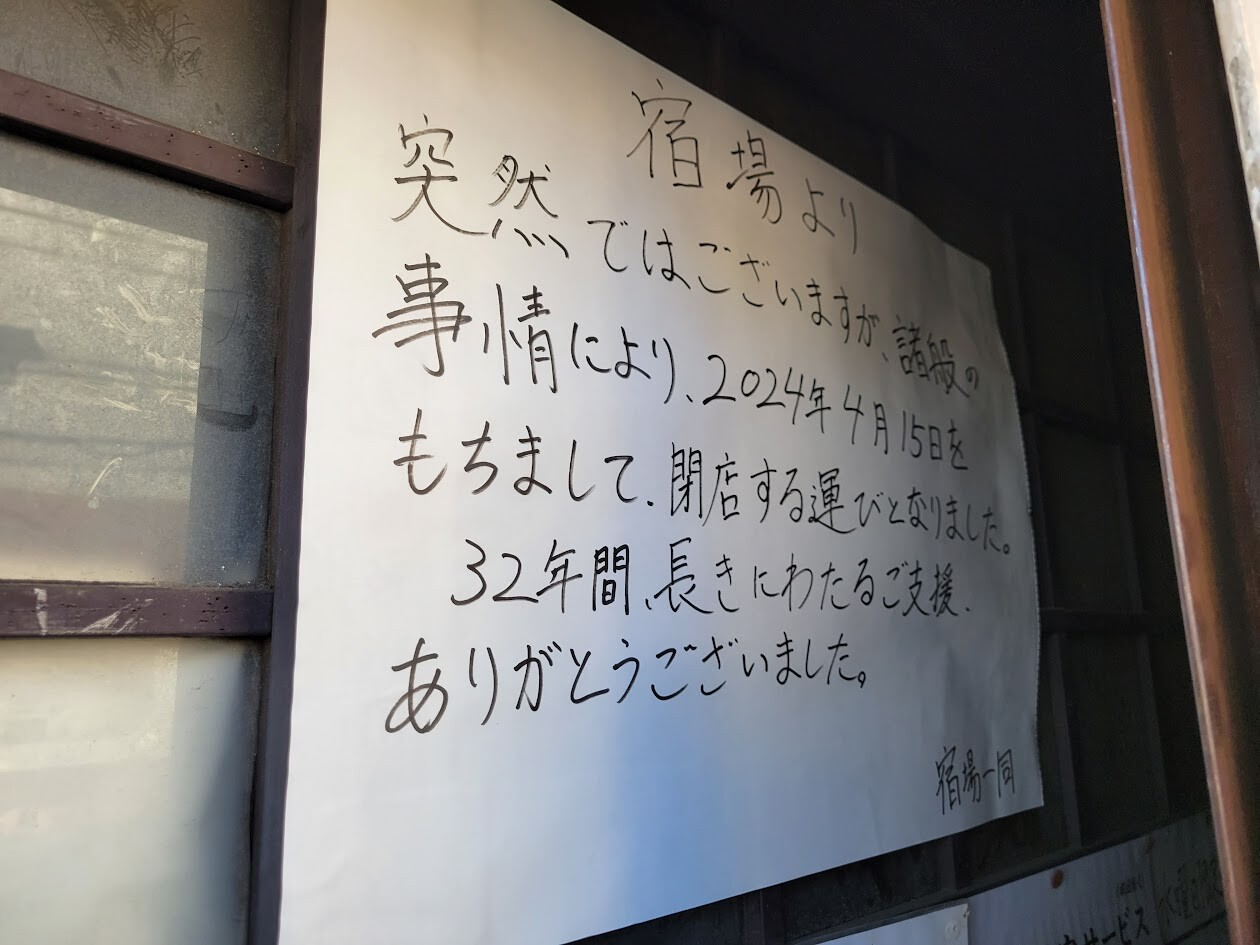 宿場より
突然ではございますが、諸般の
事情により、2024年4月15日を
もちまして、閉店する運びとなりました。
32年間、長きにわたるご支援、
ありがとうございました。
宿場一同
サービス